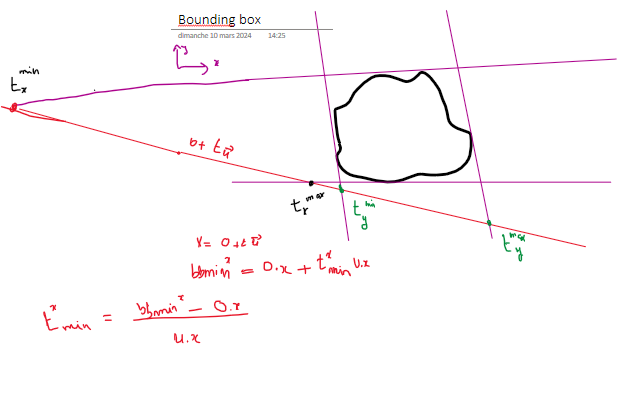 Bounding box
dimanche 10 mars 2024 14:25
y
x
t_x^min
0 + t u⃗
t_x^max
t_y^min
t_y^max
r = 0 + t u⃗
bbmin^x = 0.x + t_min^x u.x
t_min^x = (bbmin^x - 0.x) / u.x